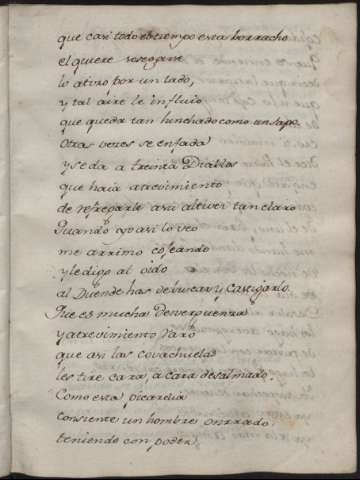 que casi todo el tiempo esta borracho
el quiere sosegarse
lo atiro por un lado,
y tal aire le influio
que queda tan hinchado como un sapo.
Otras veces se enfada
y se da a treinta Diablos
que haia atrevimiento
de refregarle asu altivez tan claro
Quando yo asi lo veo
me arrimo cojeando
y le digo al oido
al Duende has de buscar y castigarlo.
Que es mucha desverguenza
y atrevimiento raro
que asi las Covachuelas
les tire cara, a cara desalmado.
Como esta picardia
consiente un hombre onrrado
teniendo con poder